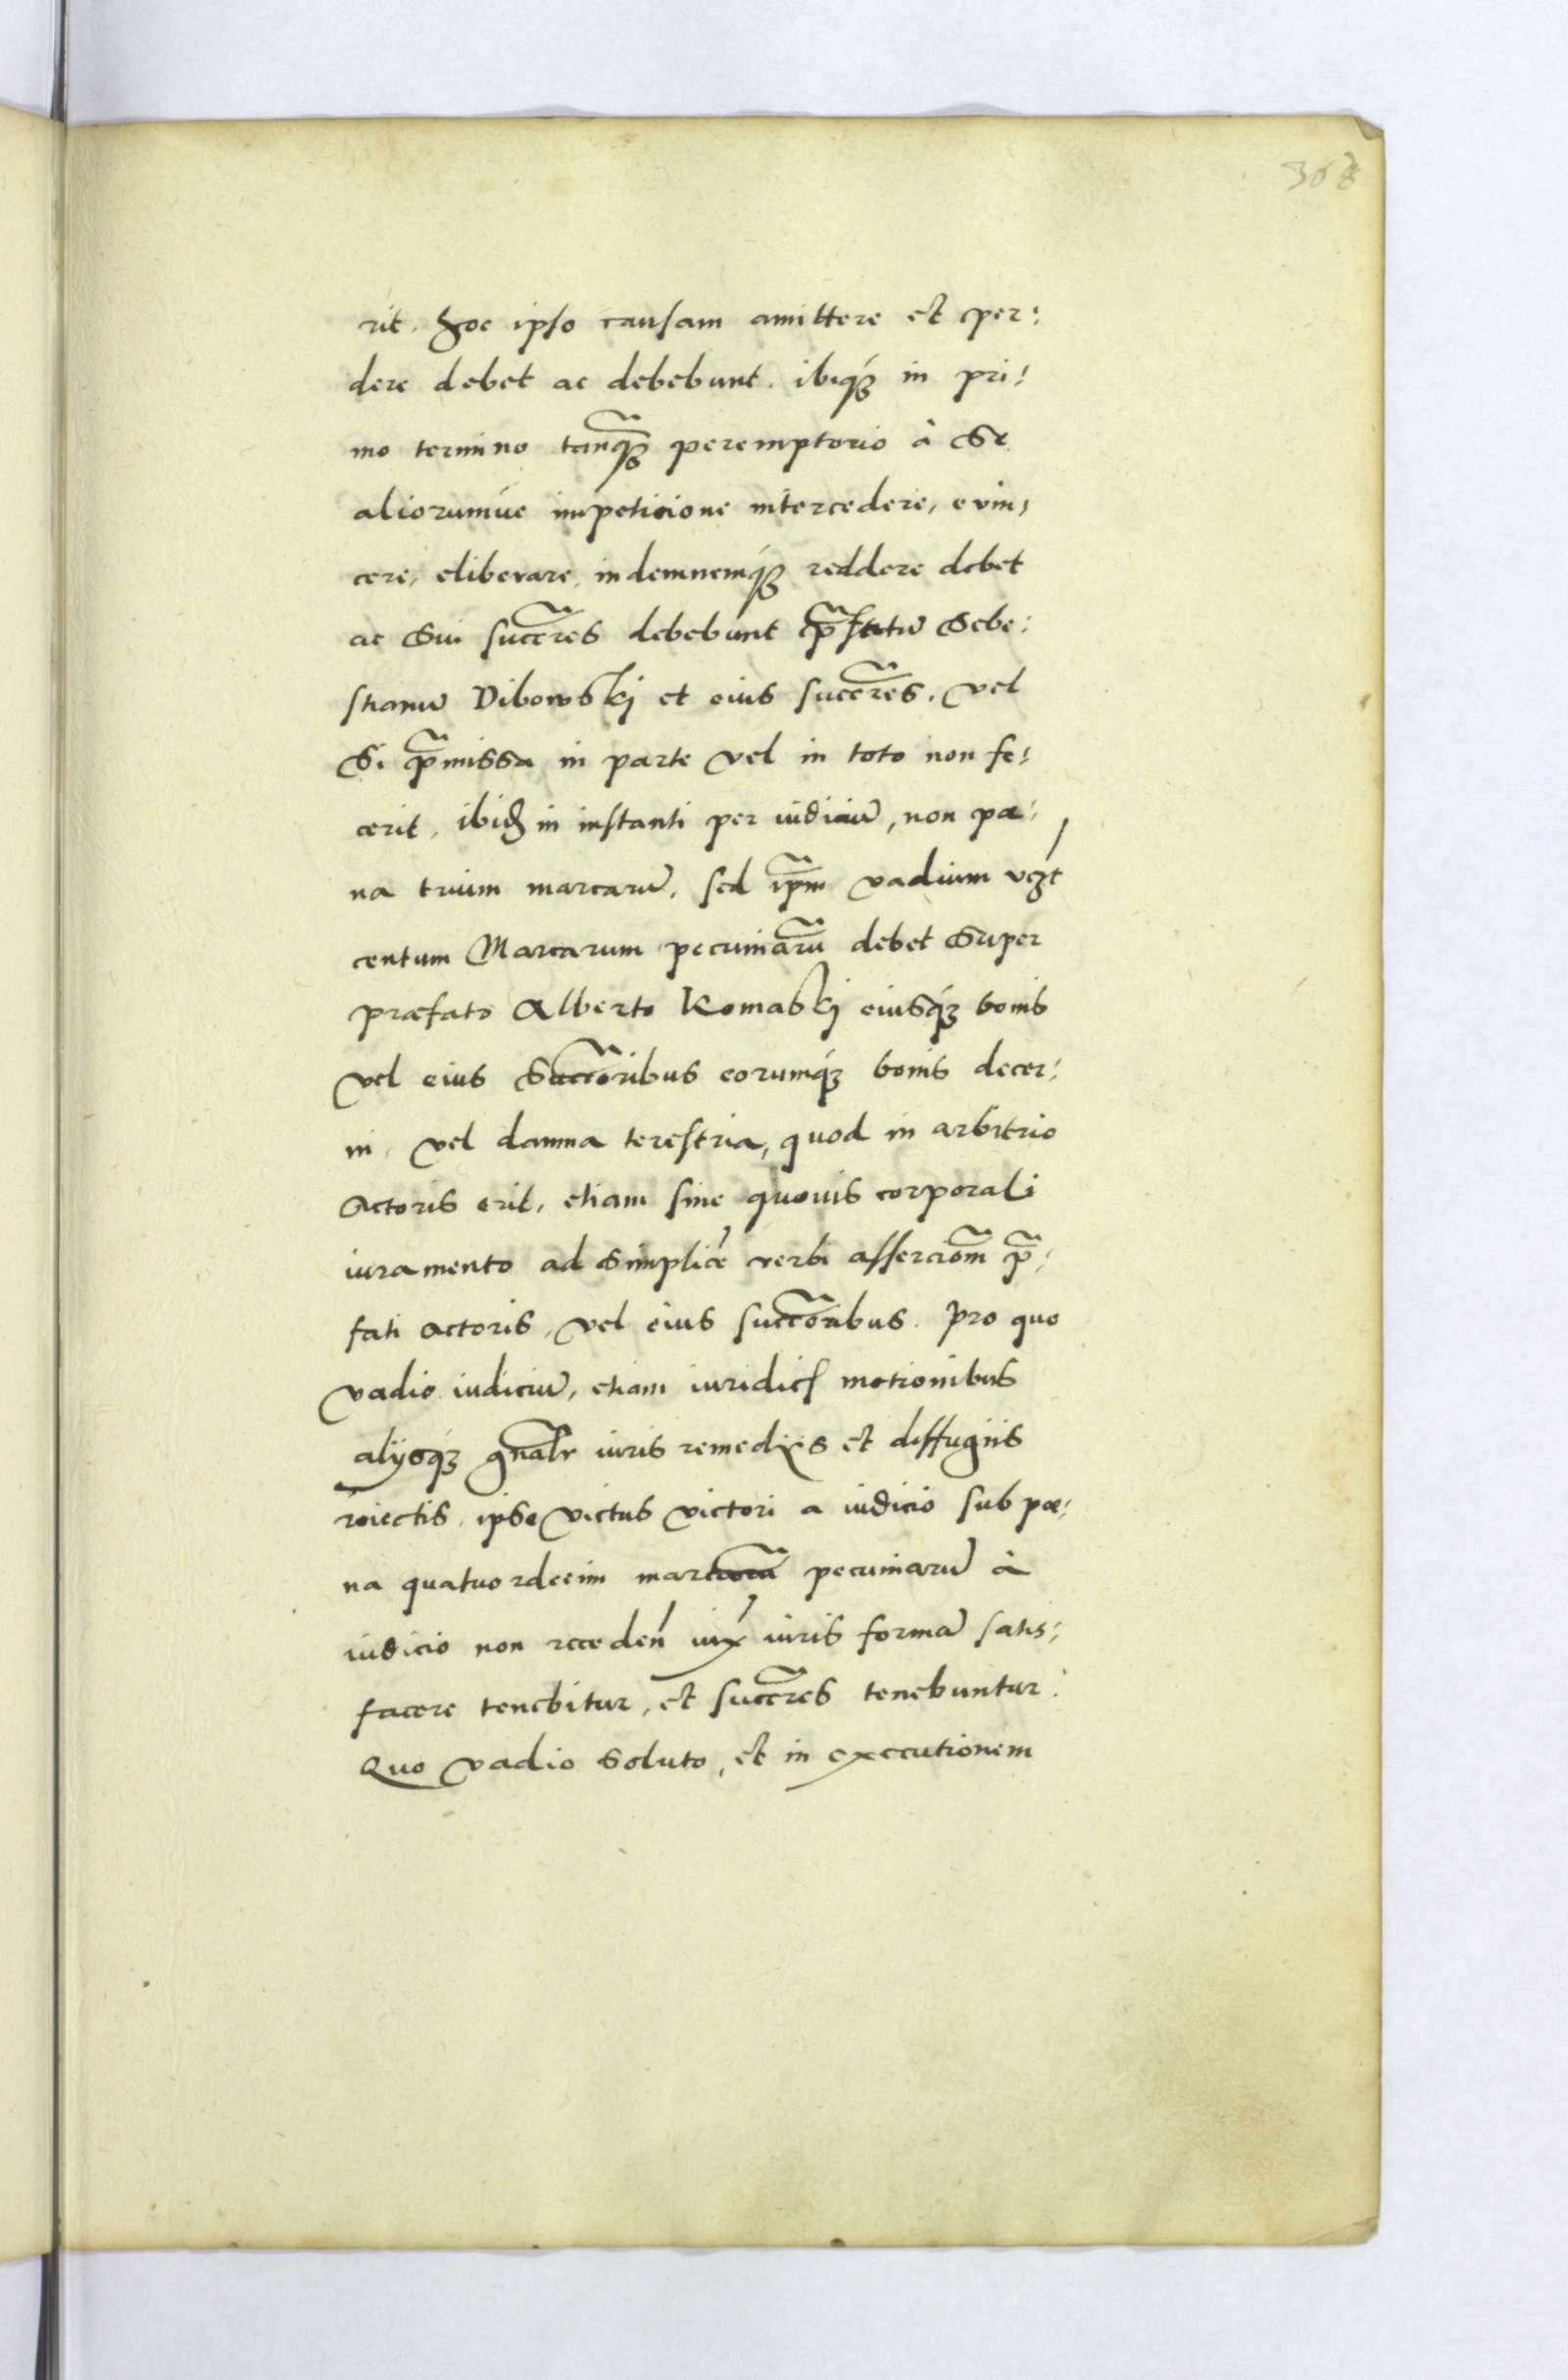 368
rit. Hoc ipso causam amittere et per:
dere debet ac debebunt. ibiq́ꝫ in pri:
mo termino tanq̃ꝫ peremptorio à Se
aliorumúe impeticione intercedere, evin,
cere, eliberare, indemnemq́ꝫ reddere debet
ac Sui succeres debebunt Sebe:
stianū Dibowskj et eius succeres. vel
Si p̃missa in parte vel in toto non fe:
cerit, ibiđ in instanti per iudiciū, non pæ:
na trium marcarū, sed ip̃m vadium vczt
centum Marcarum pecuniarũ debet Super
præfato Alberto Komaskj eiusq́ꝫ bonis
vel eius Succoribus eorumq́ꝫ bonis decer:
ni, vel damna terestria, quod in arbitrio
Actoris erit, etiam sine quouis corporali
iuramento ad Simplicē verbi assercõm p̃:
fati Actoris, vel eius succoribus. Pro quo
vadio iudiciū, etiam iuridicꝭ motionibus
alijsq́ꝫ gnãlr iuris remedijs et diffugiis
reiectis, ipse victus victori a iudicio sub pæ:
na quatuordecim pecuniarū à
iudicio non receden̄ iux̄ iuris formā satis:
facere tenebitur, et succeres tenebuntur.
Quo vadio Soluto, et in executionem